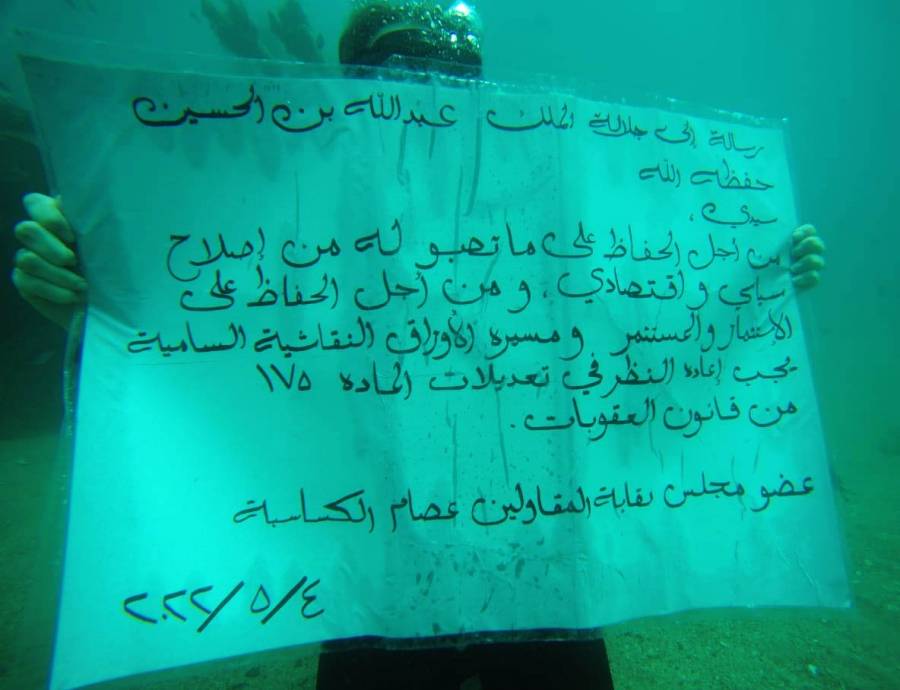 رسالة إلى جلالة الملك عبدالله بن الحسين
حفظه الله
سيدي ،
من أجل الحفاظ على ما تصبو له من إصلاح
سياسي واقتصادي ، ومن أجل الحفاظ على
الإستثمار والمستثمر ومسيره الأوراق النقاشية السامية
يجب إعاده النظر في تعديلات الماده ١٧٥
من قانون العقوبات .
عضو مجلس نقابة المقاولين عصام الكساسبة
٢٠٢٢/٥/٤